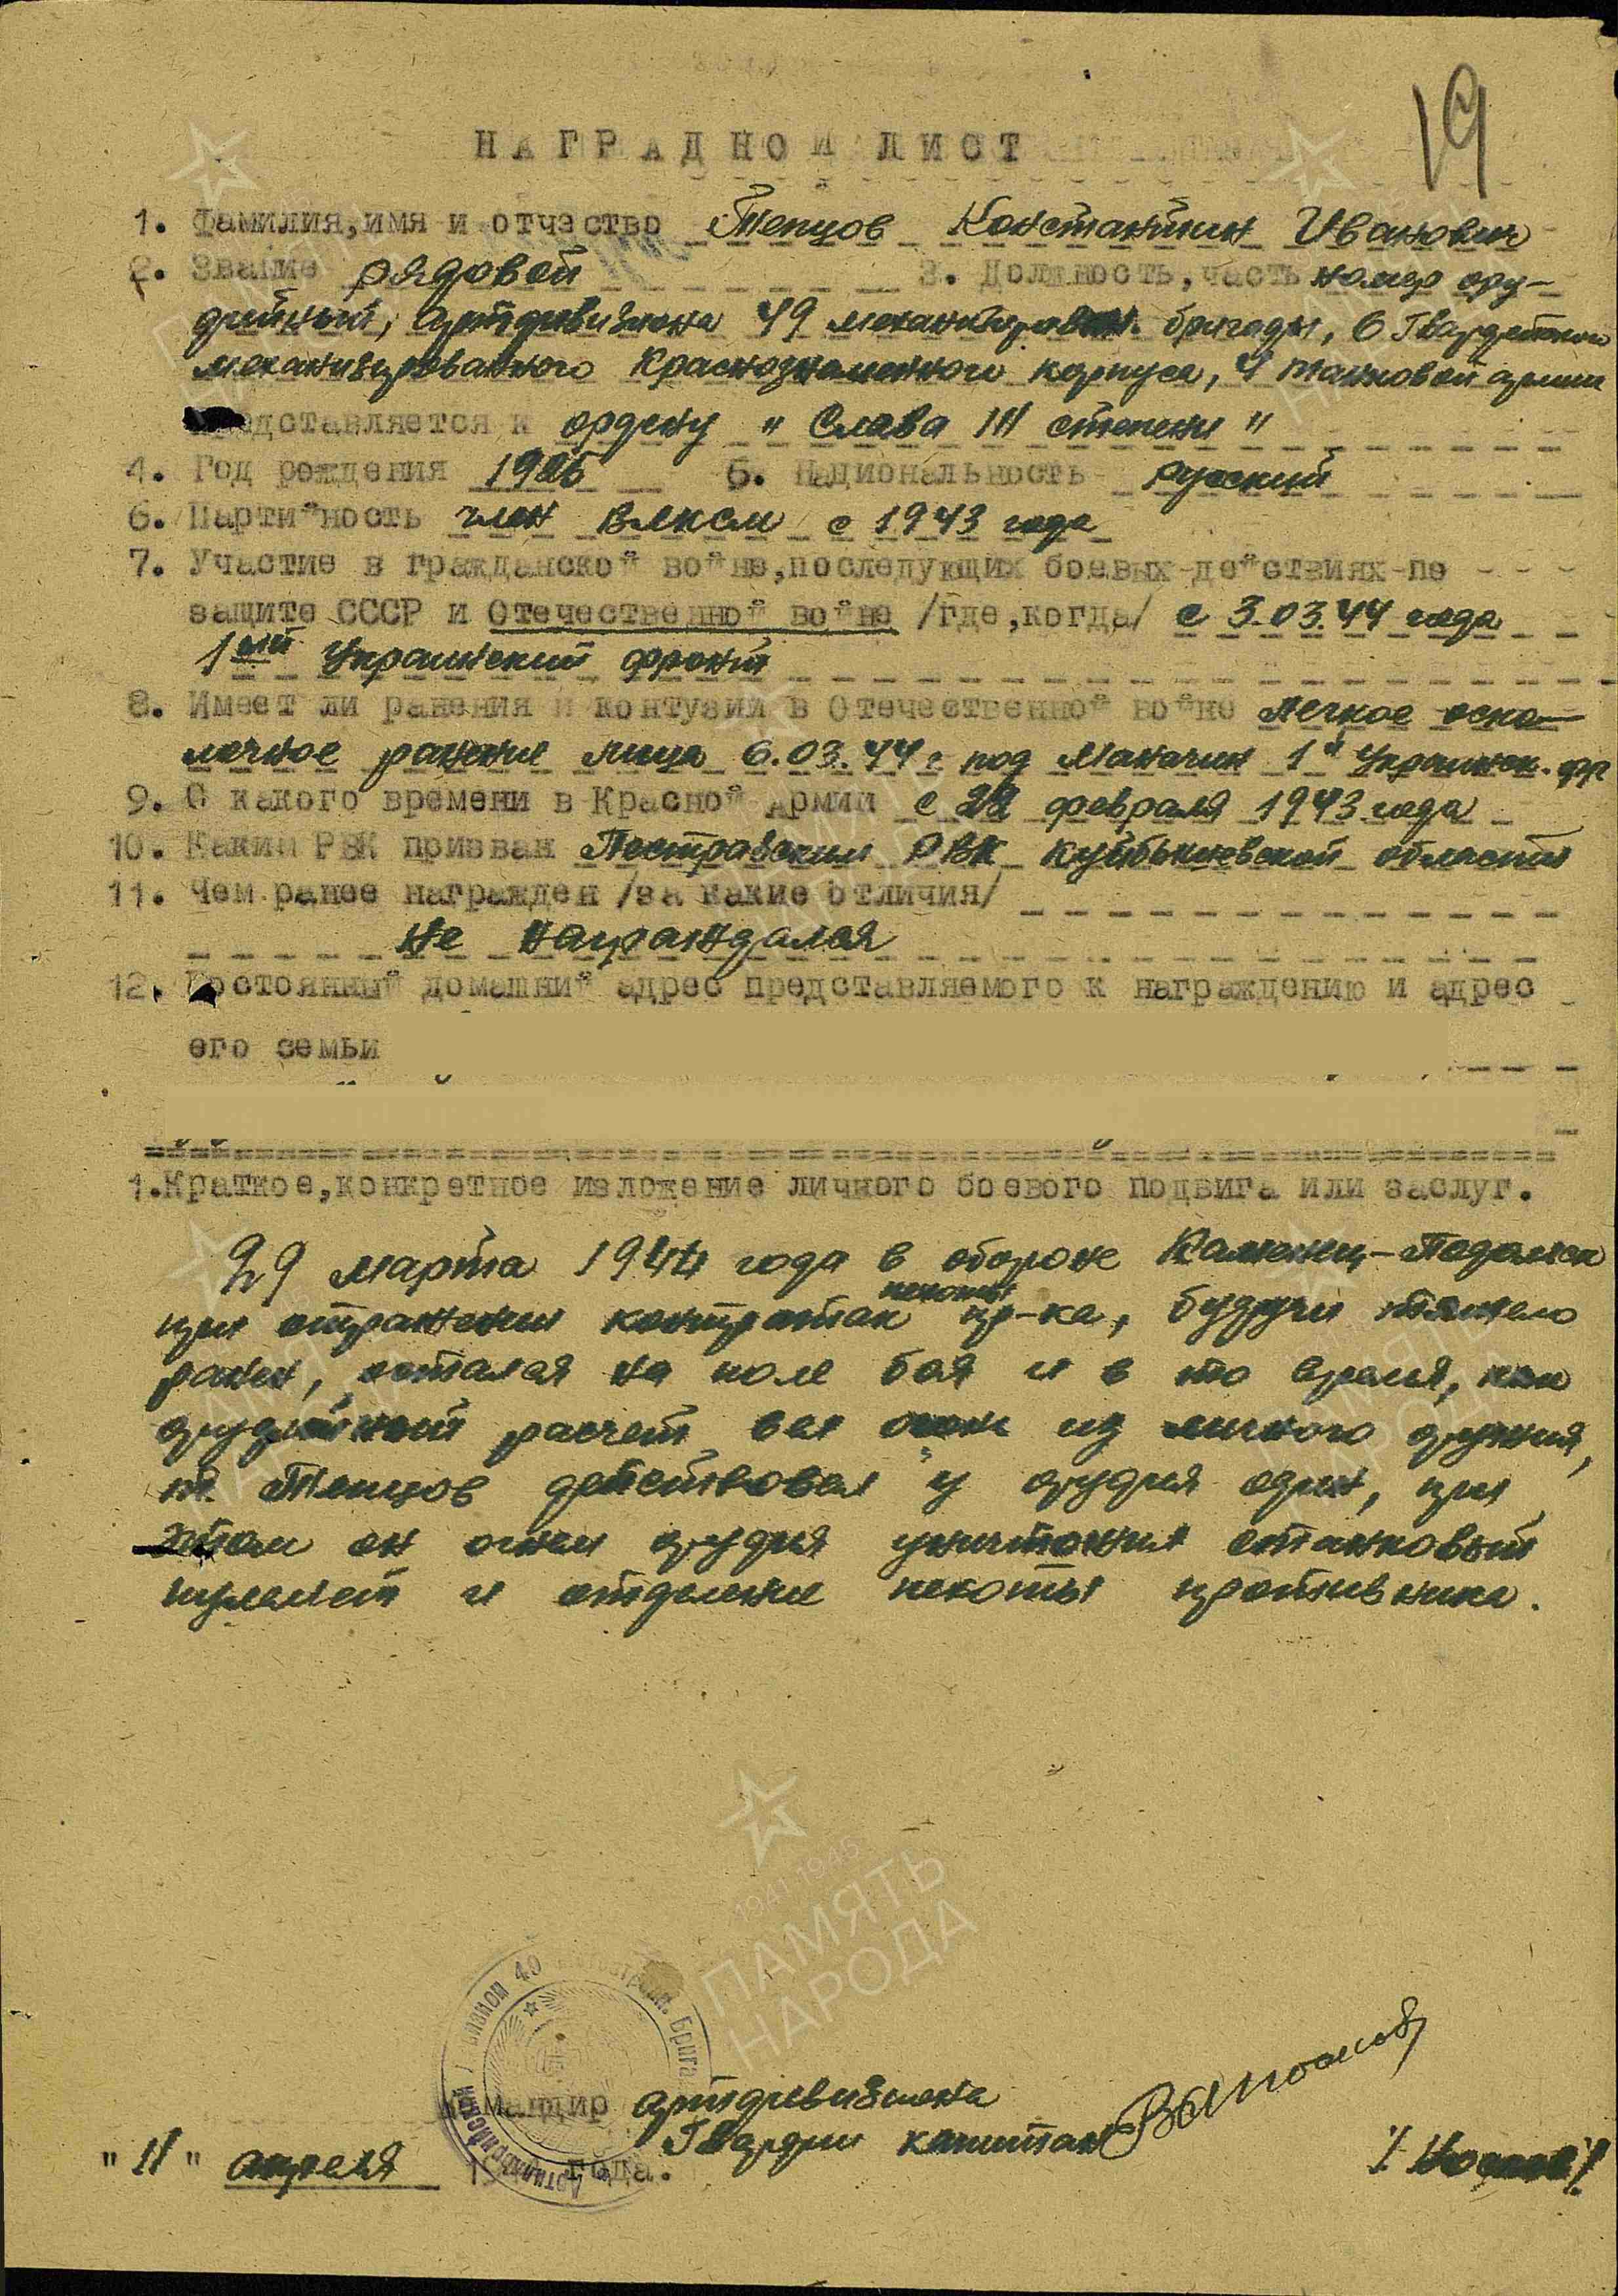 19
НАГРАДНОЙ ЛИСТ
1. Фамилия, имя и отчество Тепцов Константин Иванович
2. Звание рядовой 3. Должность, часть номер ору-
дийный, артдивизиона 49 механизирован. бригады, 6 Гвардейского
механизированного Краснознаменного корпуса, 4 танковой армии
представляется к ордену "Слава III степени"
4. Год рождения 1925 5. Национальность русский
6. Партийность член ВЛКСМ с 1943 года
7. Участие в гражданской войне, последующих боевых действиях по
защите СССР и Отечественной войне /где, когда/ с 3.03.44 года
1ый Украинский фронт
8. Имеет ли ранения и контузии в Отечественной войне легкое оско-
лочное ранение лица 6.03.44 г под Маначин 1й Украинск. фр
9. С какого времени в Красной Армии с 22 февраля 1943 года
10. Каким РВК призван Пестравским РВК Куйбышевской области
11. Чем ранее награжден /за какие отличия/
не награждался
12. Постоянный домашний адрес представляемого к награждению и адрес
его семьи
1. Краткое, конкретное изложение личного боевого подвига или заслуг.
29 марта 1944 года в обороне Каменец-Подольск
при отражении контратак пехоты пр-ка, будучи тяжело
ранен, остался на поле боя и в то время, как
орудийный расчет вел огонь из личного оружия,
т. Тепцов действовал у орудия один, при
этом он огнем орудия уничтожил станковый
пулемет и отделение пехоты противника.
Командир артдивизиона
Гвардии капитан
"11" апреля 194 года.
1941-1945
ПАМЯТЬ
НАРОДА